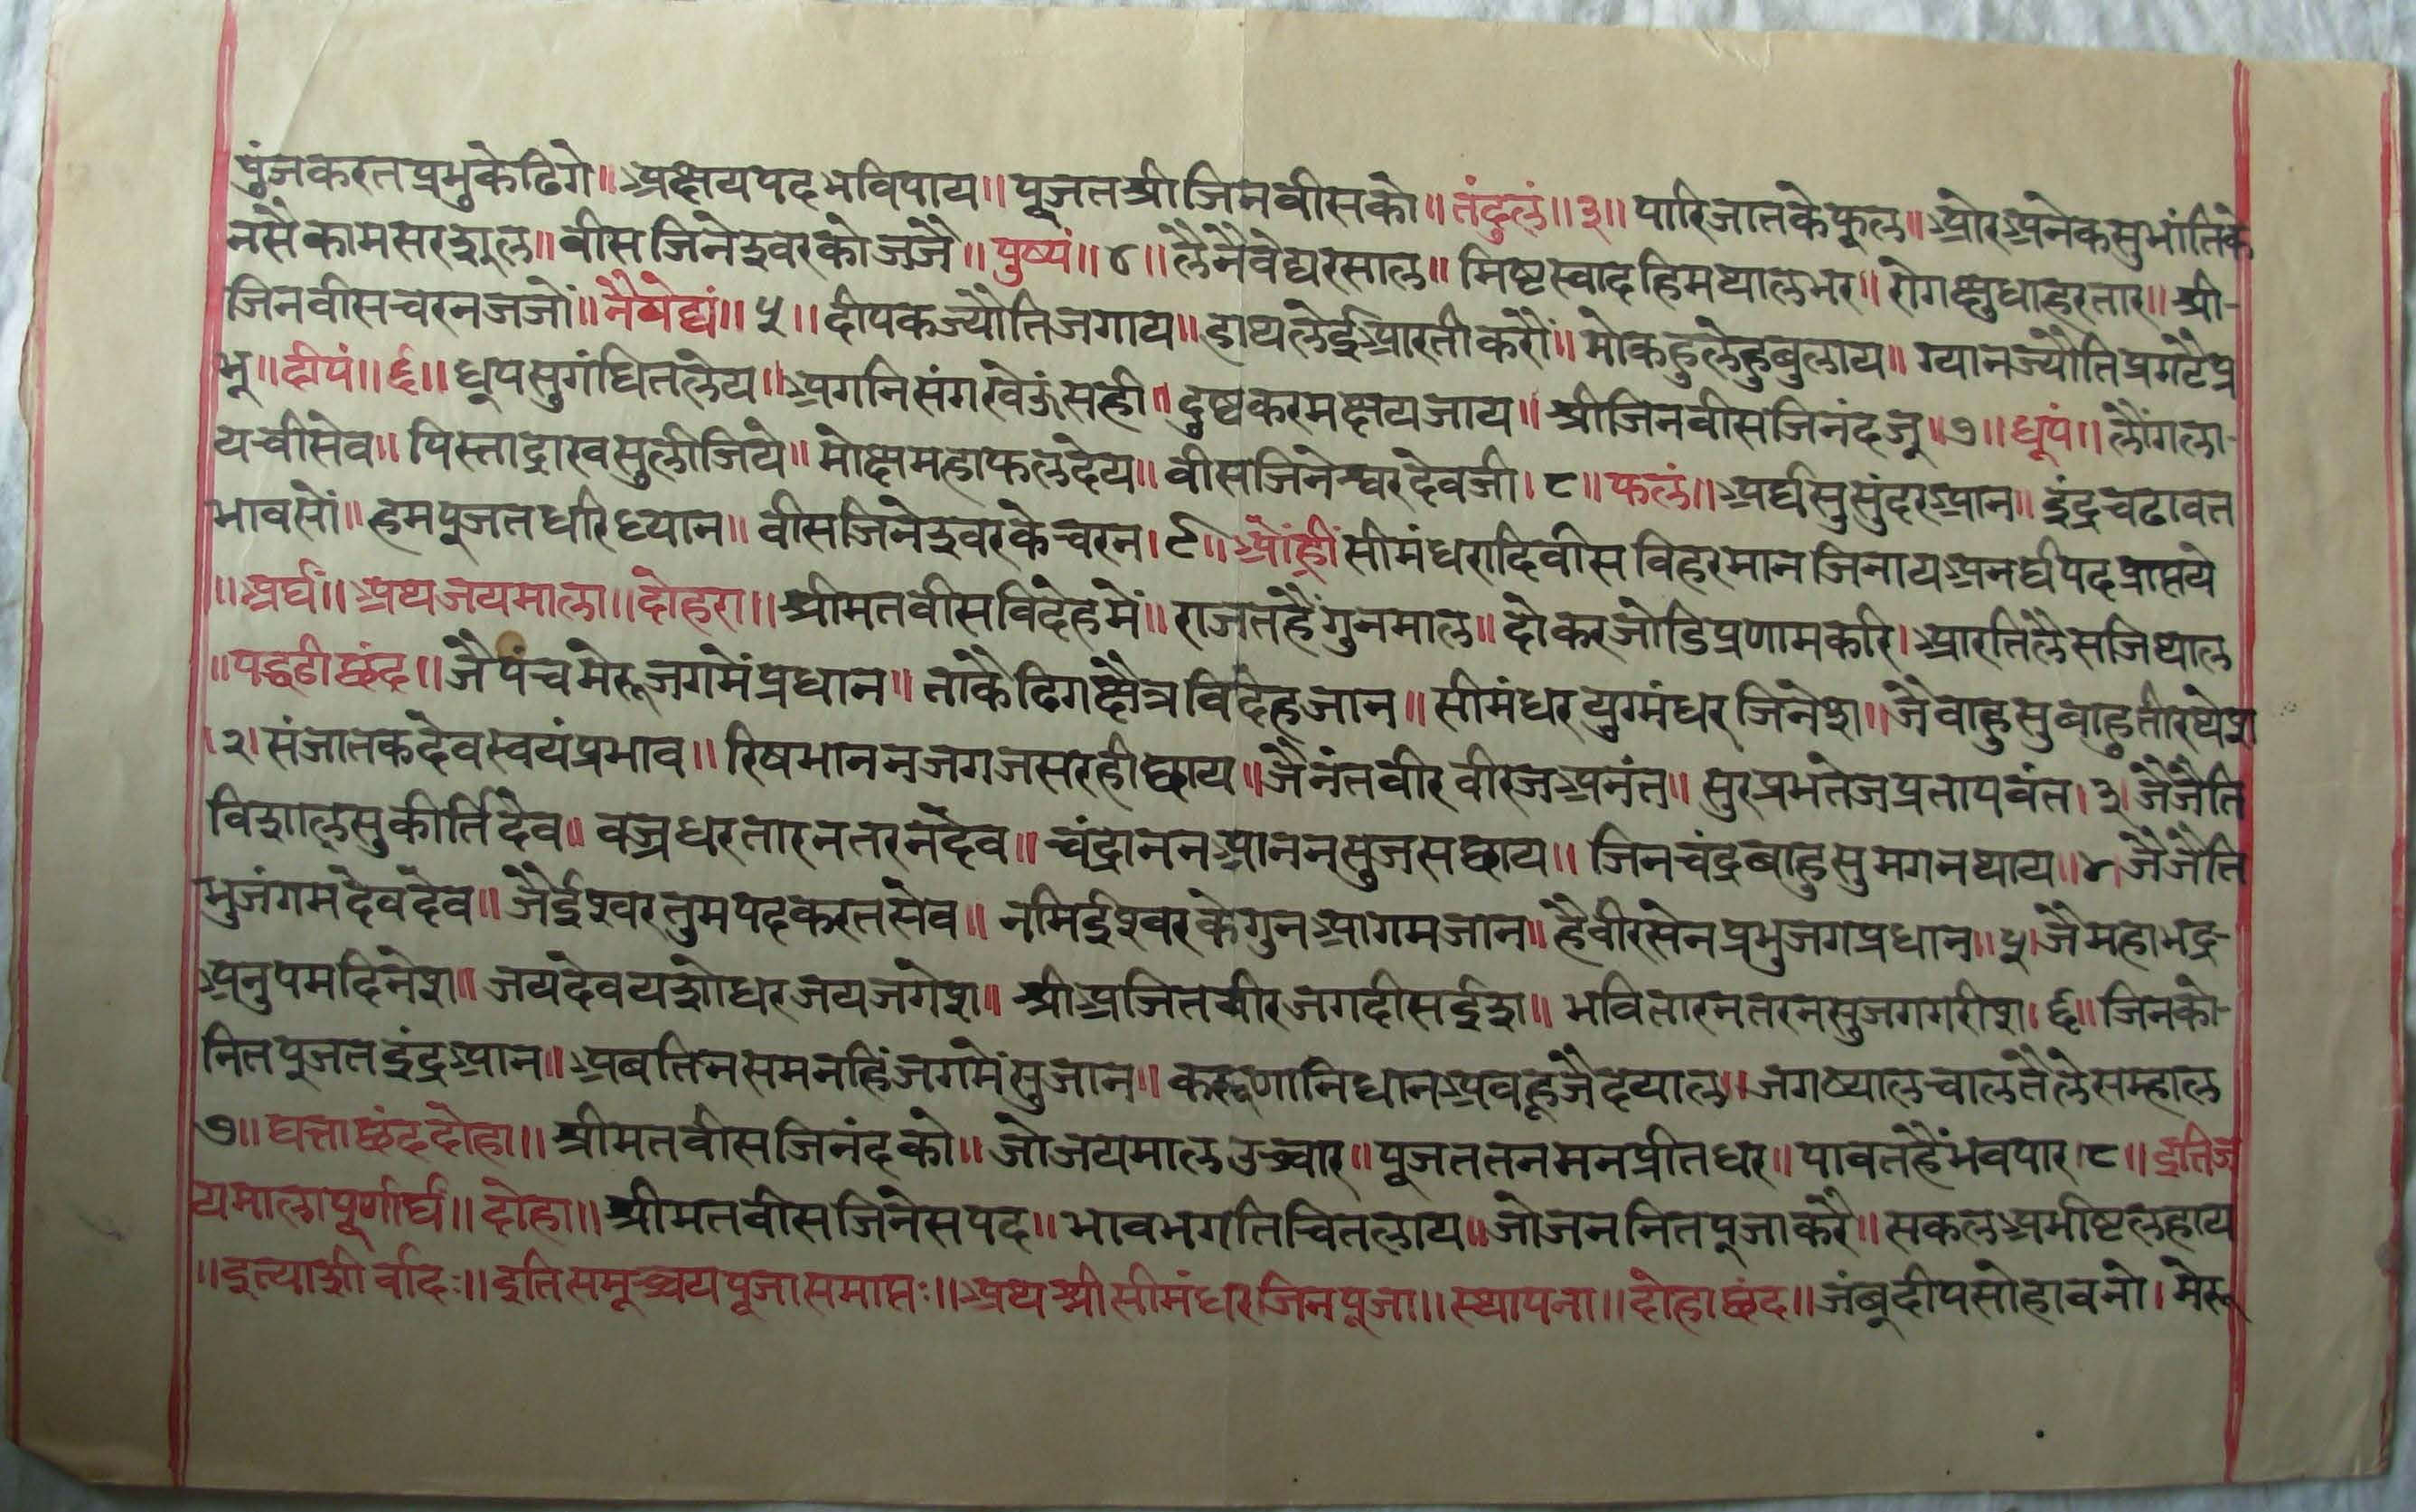 पुंजकरतप्रभुकेढिगे॥अक्षयपदभविपाय॥पूजतश्रीजिनवीसको॥तंदुलं॥३॥पारिजातकेफूल॥ओरअनेकसुभांतिके
नसैकामसरशूल॥वीसजिनेश्वरकोजजै॥पुष्पं॥४॥लैनैवेद्यरसाल॥मिष्टस्वादहिमथालभर॥रोगक्षुधाहरतार॥श्री-
जिनवीसचरनजजों॥नैवेद्यं॥५॥दीपकज्यौतिजगाय॥हाथलेईआरतीकरौं॥मोकहुलेहुबुलाय॥ग्यानज्यौतिप्रगटैप्र
भू॥दीपं॥६॥धूपसुगंधितलेय॥अगनिसंगखेऊंसही॥दुष्टकरमक्षयजाय॥श्रीजिनवीसजिनंदजू॥७॥धूपं॥लौंगला-
यचीसेव॥पिस्ताद्राखसुलीजिये॥मोक्षमहाफलदेय॥वीसजिनेश्वरदेवजी।८॥फलं॥अर्घसुसुंदरआन॥इंद्रचढावत
भावसों॥हमपूजतधरिध्यान॥वीसजिनेश्वरकेचरन।९॥ओंह्रींसीमंधरादिवीसविहरमानजिनायअनर्घपदप्राप्तये
॥अर्घं॥अथजयमाला॥दोहरा॥श्रीमतवीसविदेहमें॥राजतहैंगुनमाल॥दोकरजोडिप्रणामकरि।आरतिलैसजिथाल
॥पद्धडीछंद॥जैपंचमेरूजगमेंप्रधान॥ताकैढिगक्षैत्रविदेहजान॥सीमंधरयुग्मंधरजिनेश॥जैवाहुसुबाहुतीरथेश
।२।संजातकदेवस्वयंप्रभाव॥रिषभाननजगजसरहीछाय॥जैनंतवीरवीरजअनंत॥सुरप्रभतेजप्रतापवंत।३।जैजैति
विशालसुकीर्तिदेव॥वज्रधरतारनतरनदेव॥चंद्राननआननसुजसछाय॥जिनचंद्रबाहुसुमगनथाय॥४।जैजैति
भुजंगमदेवदेव॥जैईश्वरतुमपदकरतसेव॥नमिईश्वरकेगुनआगमजान॥हैवीरसेनप्रभुजगप्रधान॥५।जैमहाभद्र-
अनुपमदिनेश॥जयदेवयशोधरजयजगेश॥श्रीअजितवीरजगदीसईश॥भवितारनतरनसुजगगरीश।६॥जिनको-
नितपूजतइंद्रआन॥अबतिनसमनहिंजगमेंसुजान॥करूणानिधानअवहूजैदयाल॥जगव्यालचालतैलेसम्हाल
७॥घत्ताछंददोहा॥श्रीमतवीसजिनंदको॥जोजयमालउच्चार॥पूजततनमनप्रीतधर॥पावतहैंभवपार।८॥इतिज
यमालापूर्णार्घं॥दोहा॥श्रीमतवीसजिनेसपद॥भावभगतिचितलाय॥जोजननितपूजाकरै॥सकलअभीष्टलहाय
॥इत्याशीर्वादः॥इतिसमूच्चयपूजासमाप्तः॥अथश्रीसीमंधरजिनपूजा॥स्थापना॥दोहाछंद॥जंबूदीपसोहावनो।मेरू